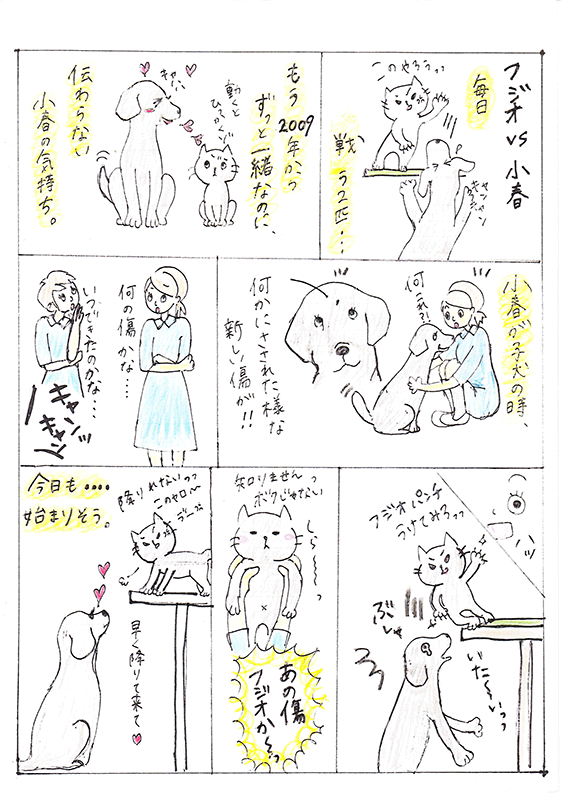 フジオ VS 小春
毎日
このやろうっっ
戦う2匹…
キャンキャン
もう2009年から
ずっと一緒なのに、
動くと
ひっかくぞ
キャハ
伝わらない
小春の気持ち。
小春が子犬の時、
何これ?!
何かにさされた様な
新しい傷が!!
何の傷かな……
いつできたのかな……
キャンッ
キャーン
フジオパンチ
うけてみろっっ
ハッ
ぶしゅ
いた〜いっっ
知りませんっ
ボクじゃない
しら〜〜っ
あの傷
フジオか〜っ
降りれないっっ
このヤロ〜
デーっっ
早く降りて来て♥
今日も‥‥
始まりそう。